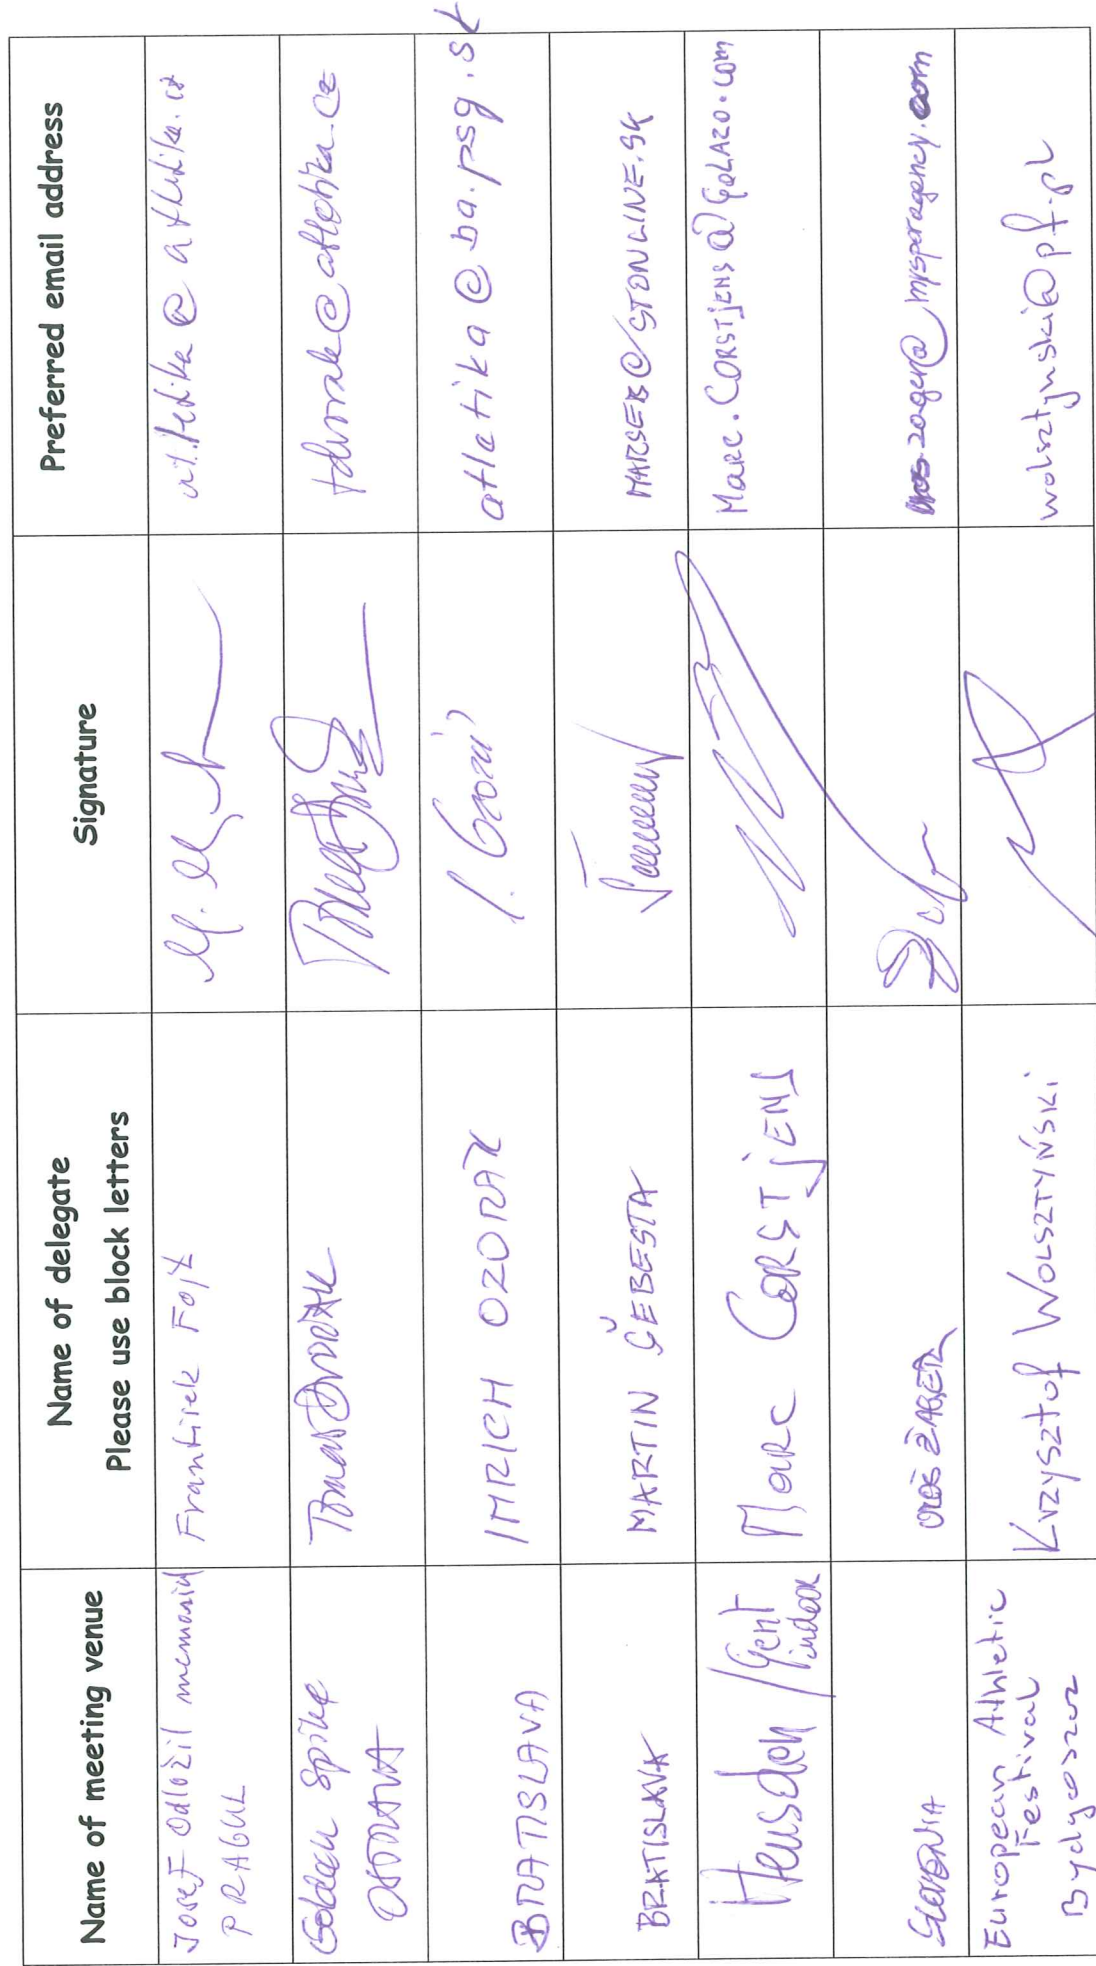 Name of meeting venue
Name of delegate
Please use block letters
Signature
Preferred email address
Josef Odložil memorial
PRAGUE
František Fojt
Golden Spike
OSTRAVA
Tomas DVORAK
BRATISLAVA
IMRICH OZORÁK
atletika@ba.psg.sk
BRATISLAVA
MARTIN ŠEBESTA
MARSEB@STONLINE.SK
Heusden / Gent
indoor
Marc CORSTjENS
Marc.CORSTjENS@GOLAZO.com
SLOVENIA
European Athletic
Festival
Bydgoszcz
Krzysztof WOLSZTYŃSKi
wolsztynski@pf.pl